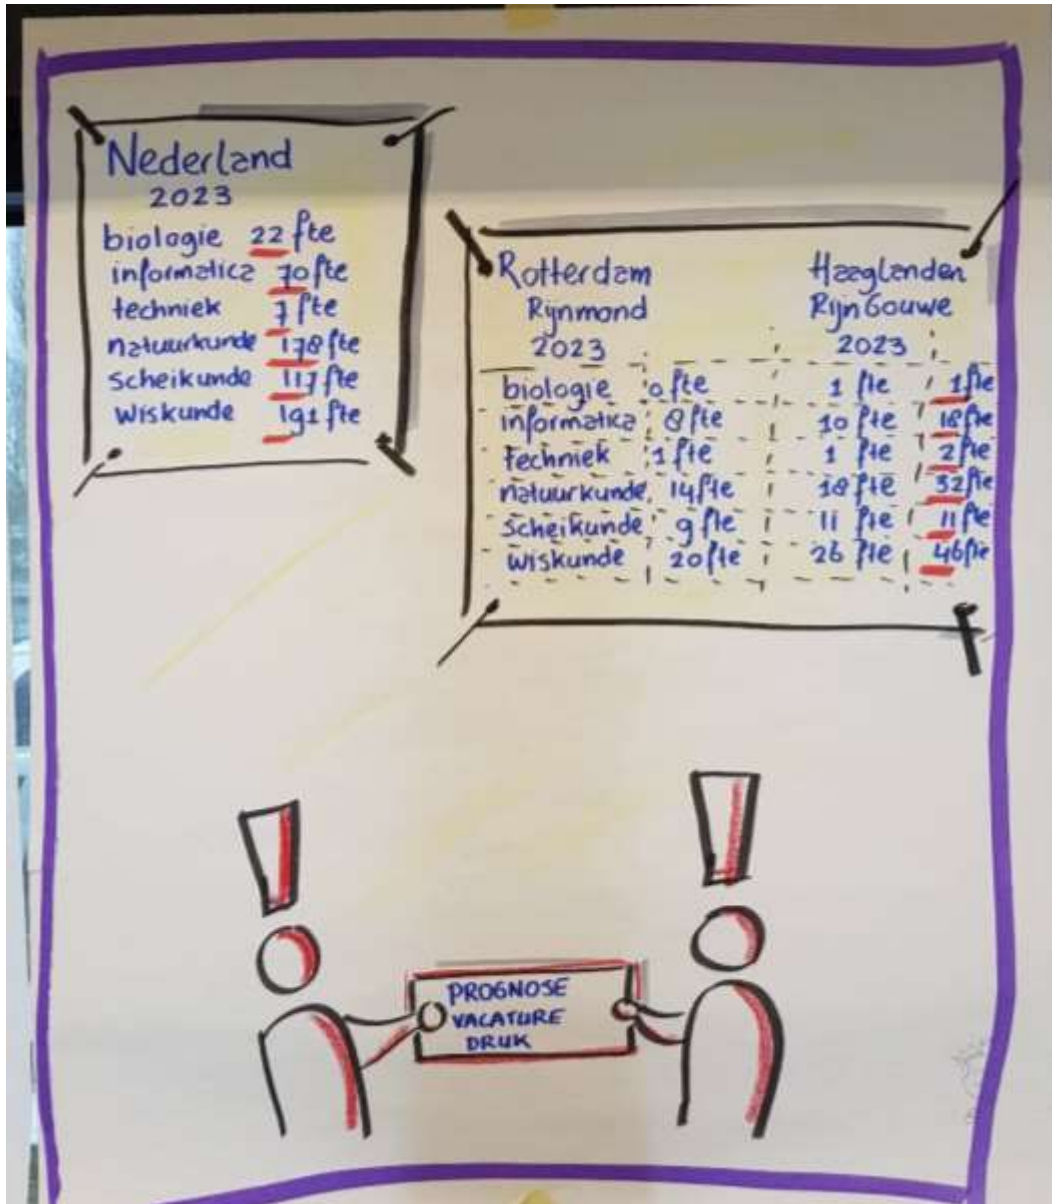 Nederland
2023
biologie 22 fte
informatica 70 fte
techniek 7 fte
natuurkunde 178 fte
scheikunde 117 fte
wiskunde 191 fte
Rotterdam Haaglanden
Rijnmond Rijn Gouwe
2023 2023
biologie 0 fte 1 fte 1 fte
informatica 8 fte 10 fte 18 fte
techniek 1 fte 1 fte 2 fte
natuurkunde 14 fte 18 fte 32 fte
scheikunde 9 fte 11 fte 11 fte
wiskunde 20 fte 26 fte 46 fte
PROGNOSE
VACATURE
DRUK